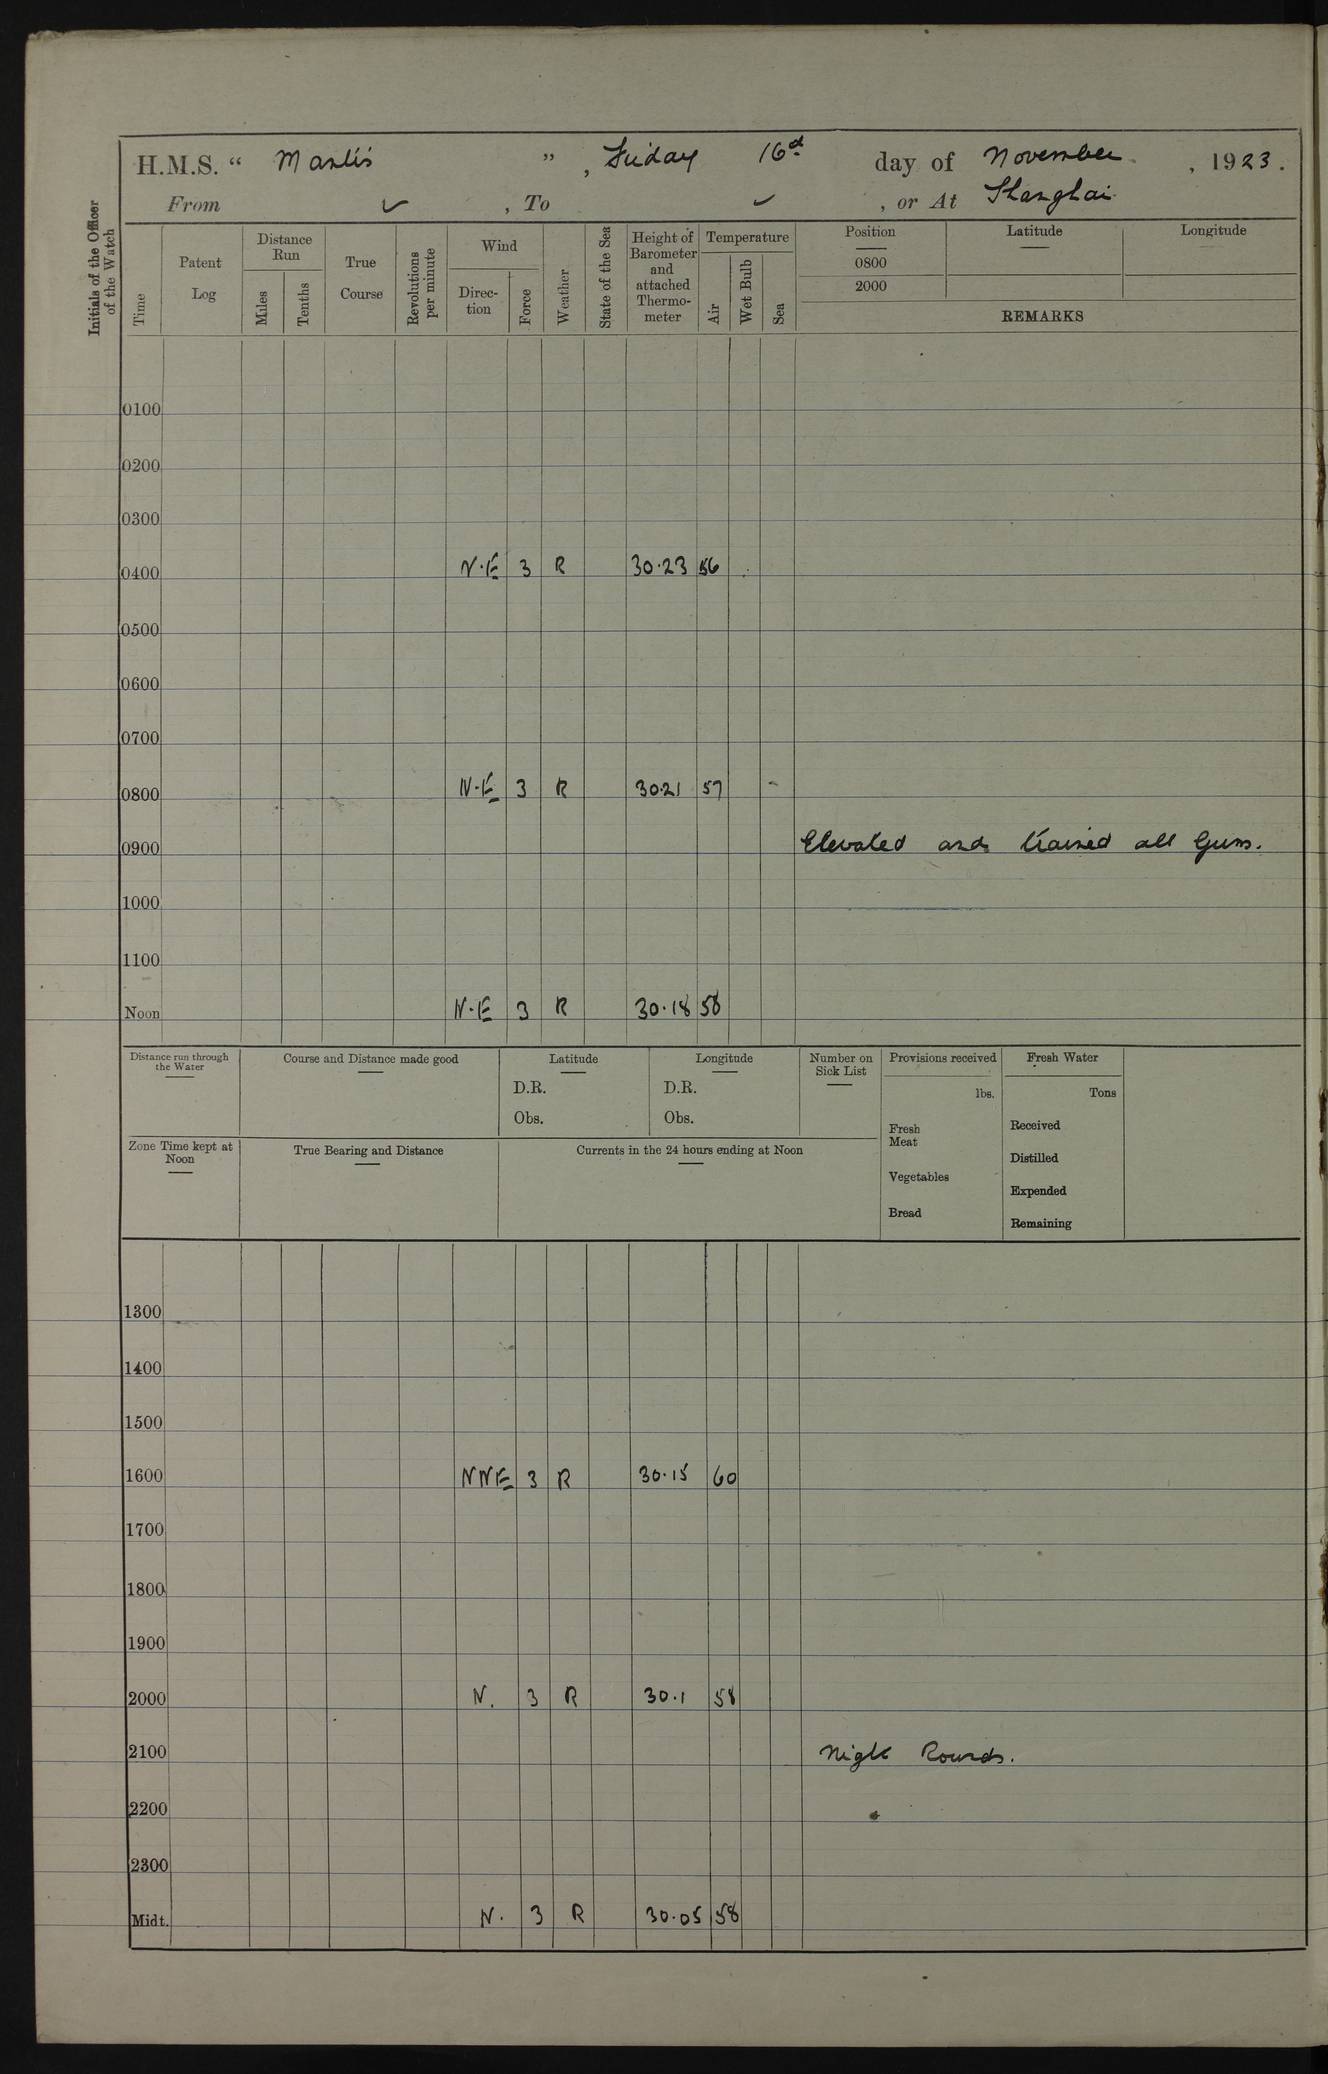 H.M.S. “ Mantis ” , Friday 16d day of November , 1923.
From ✓ , To ✓ , or At Shanghai
Initials of the Officer of the Watch
Time
Patent Log
Distance Run
Miles
Tenths
True Course
Revolutions per minute
Wind
Direc-tion
Force
Weather
State of the Sea
Height of Barometer and attached Thermo-meter
Temperature
Air
Wet Bulb
Sea
Position
0800
2000
Latitude
Longitude
REMARKS
0100
0200
0300
0400 N.E 3 R 30.23 56
0500
0600
0700
0800 N.E 3 R 30.21 57 -
0900 Elevated and trained all Guns.
1000
1100
Noon N.E 3 R 30.18 58
Distance run through the Water
Course and Distance made good
Latitude
D.R.
Obs.
Longitude
D.R.
Obs.
Number on Sick List
Provisions received
lbs.
Fresh Meat
Vegetables
Bread
Fresh Water
Tons
Received
Distilled
Expended
Remaining
Zone Time kept at Noon
True Bearing and Distance
Currents in the 24 hours ending at Noon
1300
1400
1500
1600 NNE 3 R 30.15 60
1700
1800
1900
2000 N. 3 R 30.1 58
2100 Night Rounds.
2200
2300
Midt. N. 3 R 30.05 58